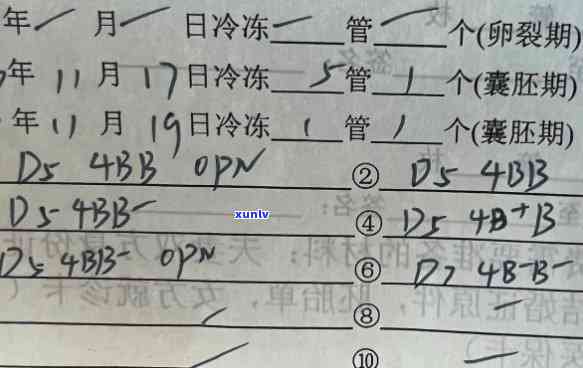 年 / 月 / 日冷冻 / 管 / 个(卵裂期)
年 11 月 17 日冷冻 5 管 1 个(囊胚期)
年 11 月 19 日冷冻 1 管 1 个(囊胚期)
D5 4BB 0PN ② D5 4BB
D5 4BB⁻ ④ D5 4B⁺B
xunlv
D5 4BB⁻ 0PN ⑥ D7 4B⁻B⁻
⑧
⑩